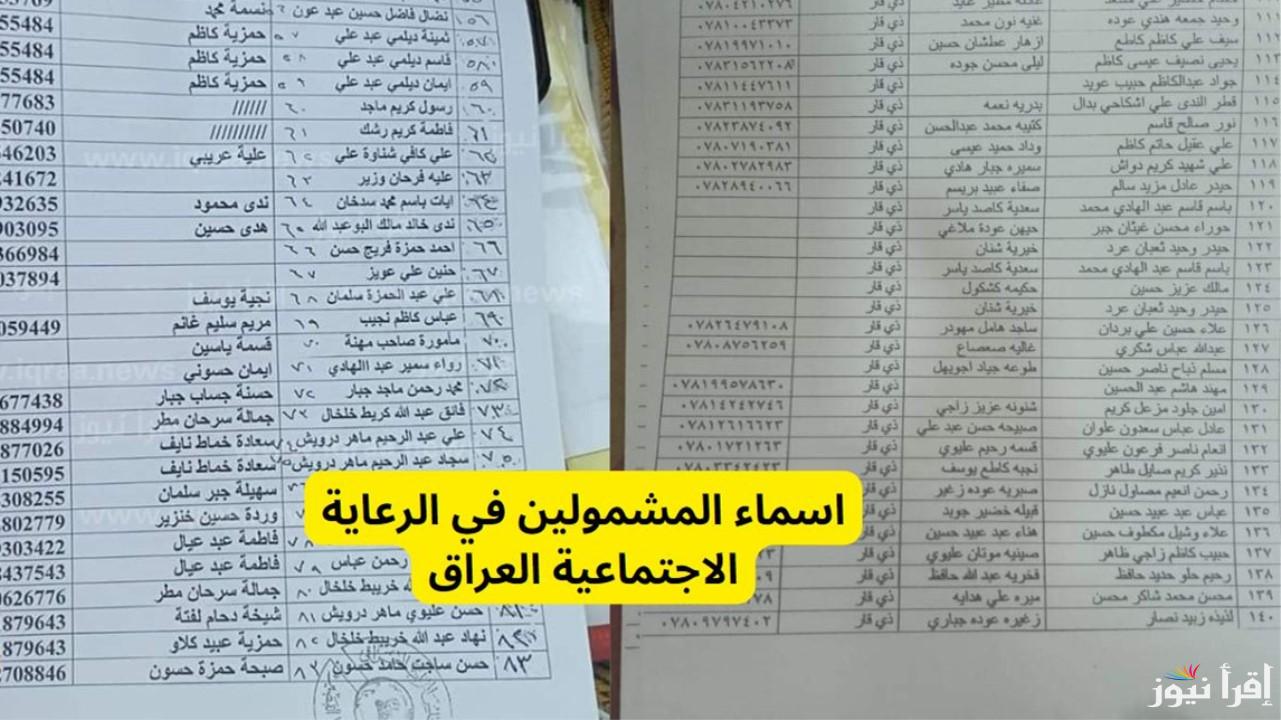 وحيد جمعه هندي عوده غنيه نون محمد ذي قار ٠٧٨١٠٠٤٣٣٧٣
١١١ سيف علي كاظم كاطع ازهار عطشان حسين ذي قار ٠٧٨١٩٩٧١٠١٠
١١٢ يحيى نصيف عيسى كاظم ليلى محسن جوده ذي قار ٠٧٨٣١٥٦٢٢٠٨
١١٤ جواد عبدالكاظم حبيب عويد ذي قار ٠٧٨١١٤٤٧٦١١
١١٥ قطر الندى علي اشكاحي بدال بدريه نعمه ذي قار ٠٧٨٣١١٩٣٧٥٨
١١٦ نور صالح قاسم كتيبه محمد عبدالحسن ذي قار ٠٧٨٢٣٨٧٤٠٩٢
١١٧ علي عقيل حاتم كاظم وداد حميد عيسى ذي قار ٠٧٨٠٧١٩٠٣٨١
١١٨ علي شهيد كريم دواش سميره جبار هادي ذي قار ٠٧٨٠٢٧٨٢٩٨٣
١١٩ حيدر عادل مزيد سالم صفاء عبيد بريسم ذي قار ٠٧٨٢٨٩٤٠٠٦٦
١٢٠ باسم قاسم عبد الهادي محمد سعدية كاصد ياسر ذي قار
١٢١ حوراء محسن غيثان جبر جيهن عودة ملاغي ذي قار
١٢٢ حيدر وحيد ثعبان عرد خيرية شنان ذي قار
١٢٣ باسم قاسم عبد الهادي محمد سعدية كاصد ياسر ذي قار
١٢٤ مالك عزيز حسين حكيمه كشكول ذي قار
١٢٥ حيدر وحيد ثعبان عرد خيرية شنان ذي قار
١٢٦ علاء حسين علي بردان ساجد هامل مهودر ذي قار ٠٧٨٢٦٤٧٩١٠٨
١٢٧ عبدالله عباس شكري غاليه صعصاع ذي قار ٠٧٨٠٨٧٥٦٢٥٩
١٢٨ مسلم نباح ناصر حسين طوعه جياد اجويهل ذي قار
١٢٩ مهند هاشم عبد الحسين ذي قار ٠٧٨١٩٩٥٧٨٦٣٠
١٣٠ امين جلود مزعل كريم شنونه عزيز زاجي ذي قار ٠٧٨١٤٢٤٢٧٤٦
١٣١ عادل عباس سعدون علوان صبيحه حسن عبد علي ذي قار ٠٧٨١٢٦١٦٦٢٣
١٣٢ انعام ناصر فرعون عليوي قسمه رحيم عليوي ذي قار ٠٧٨٠١٧٣١٢٦٣
١٣٣ نذير كريم صايل طاهر نجيه كاطع يوسف ذي قار ٠٧٨٠٣٣٤٢٤٢٣
١٣٤ رحمن انعيم مصاول نازل صبريه عوده زغير ذي قار
١٣٥ عباس عبد عبيد حسين قبيله خضير جويد ذي قار
١٣٦ علاء وشيل مكطوف حسين هناء عبد عبيد حسين ذي قار
١٣٧ حبيب كاظم زاجي ظاهر صينيه موتان عليوي ذي قار
١٣٨ رحيم حلو حديد حافظ فخريه عبد الله حافظ ذي قار
١٣٩ محسن محمد شاكر محسن ميره علي هدايه ذي قار
١٤٠ لذيذه زبيد نصار زغيره عوده جباري ذي قار ٠٧٨٠٩٧٩٧٤٠٢
نضال فاضل حسين عبد عون نسمة محمد
ثمينة ديلمي عبد علي حمزية كاظم 55484
قاسم ديلمي عبد علي حمزية كاظم 55484
٥٩ ايمان ديلمي عبد علي حمزية كاظم 55484
٦٠ رسول كريم ماجد ////// 77683
٦١ فاطمة كريم رشك ////////// 50740
علي كافي شناوة علي علية عريبي 546203
٦٣ عليه فرحان وزير 241672
٦٤ ايات باسم محمد سدخان ندى محمود 932635
٦٥ ندى خالد مالك البوعبد الله هدى حسين 903095
٦٦ احمد حمزة فريج حسن 366984
٦٧ حنين علي عويز 037894
٦٨ علي عبد الحمزة سلمان نجية يوسف
٦٩ عباس كاظم نجيب مريم سليم غانم 059449
٧٠ مأمورة صاحب مهنة قسمة ياسين
٧١ رواء سمير عبد االهادي ايمان حسوني
محمد رحمن ماجد جبار حسنة جساب جبار 677438
٧٣ فائق عبد الله كريط خلخال جمالة سرحان مطر 884994
٧٤ علي عبد الرحيم ماهر درويش سعادة خماط نايف 877026
٧٥ سجاد عبد الرحيم ماهر درويش سعادة خماط نايف 150595
سهيلة جبر سلمان 308255
وردة حسين خنزير 802779
فاطمة عبد عيال 303422
رحمن عباس فاطمة عبد عيال 437543
٨٠ خريبط خلخال جمالة سرحان مطر 626776
٨١ حسن عليوي ماهر درويش شيخة دحام لفتة 879643
نهاد عبد الله خريبط خلخال حمزية عبيد كلاو 879643
٨٣ حسن ساجت حامد حسون صبحة حمزة حسون 708846
اسماء المشمولين في الرعاية
الاجتماعية العراق
إقرأ نيوز